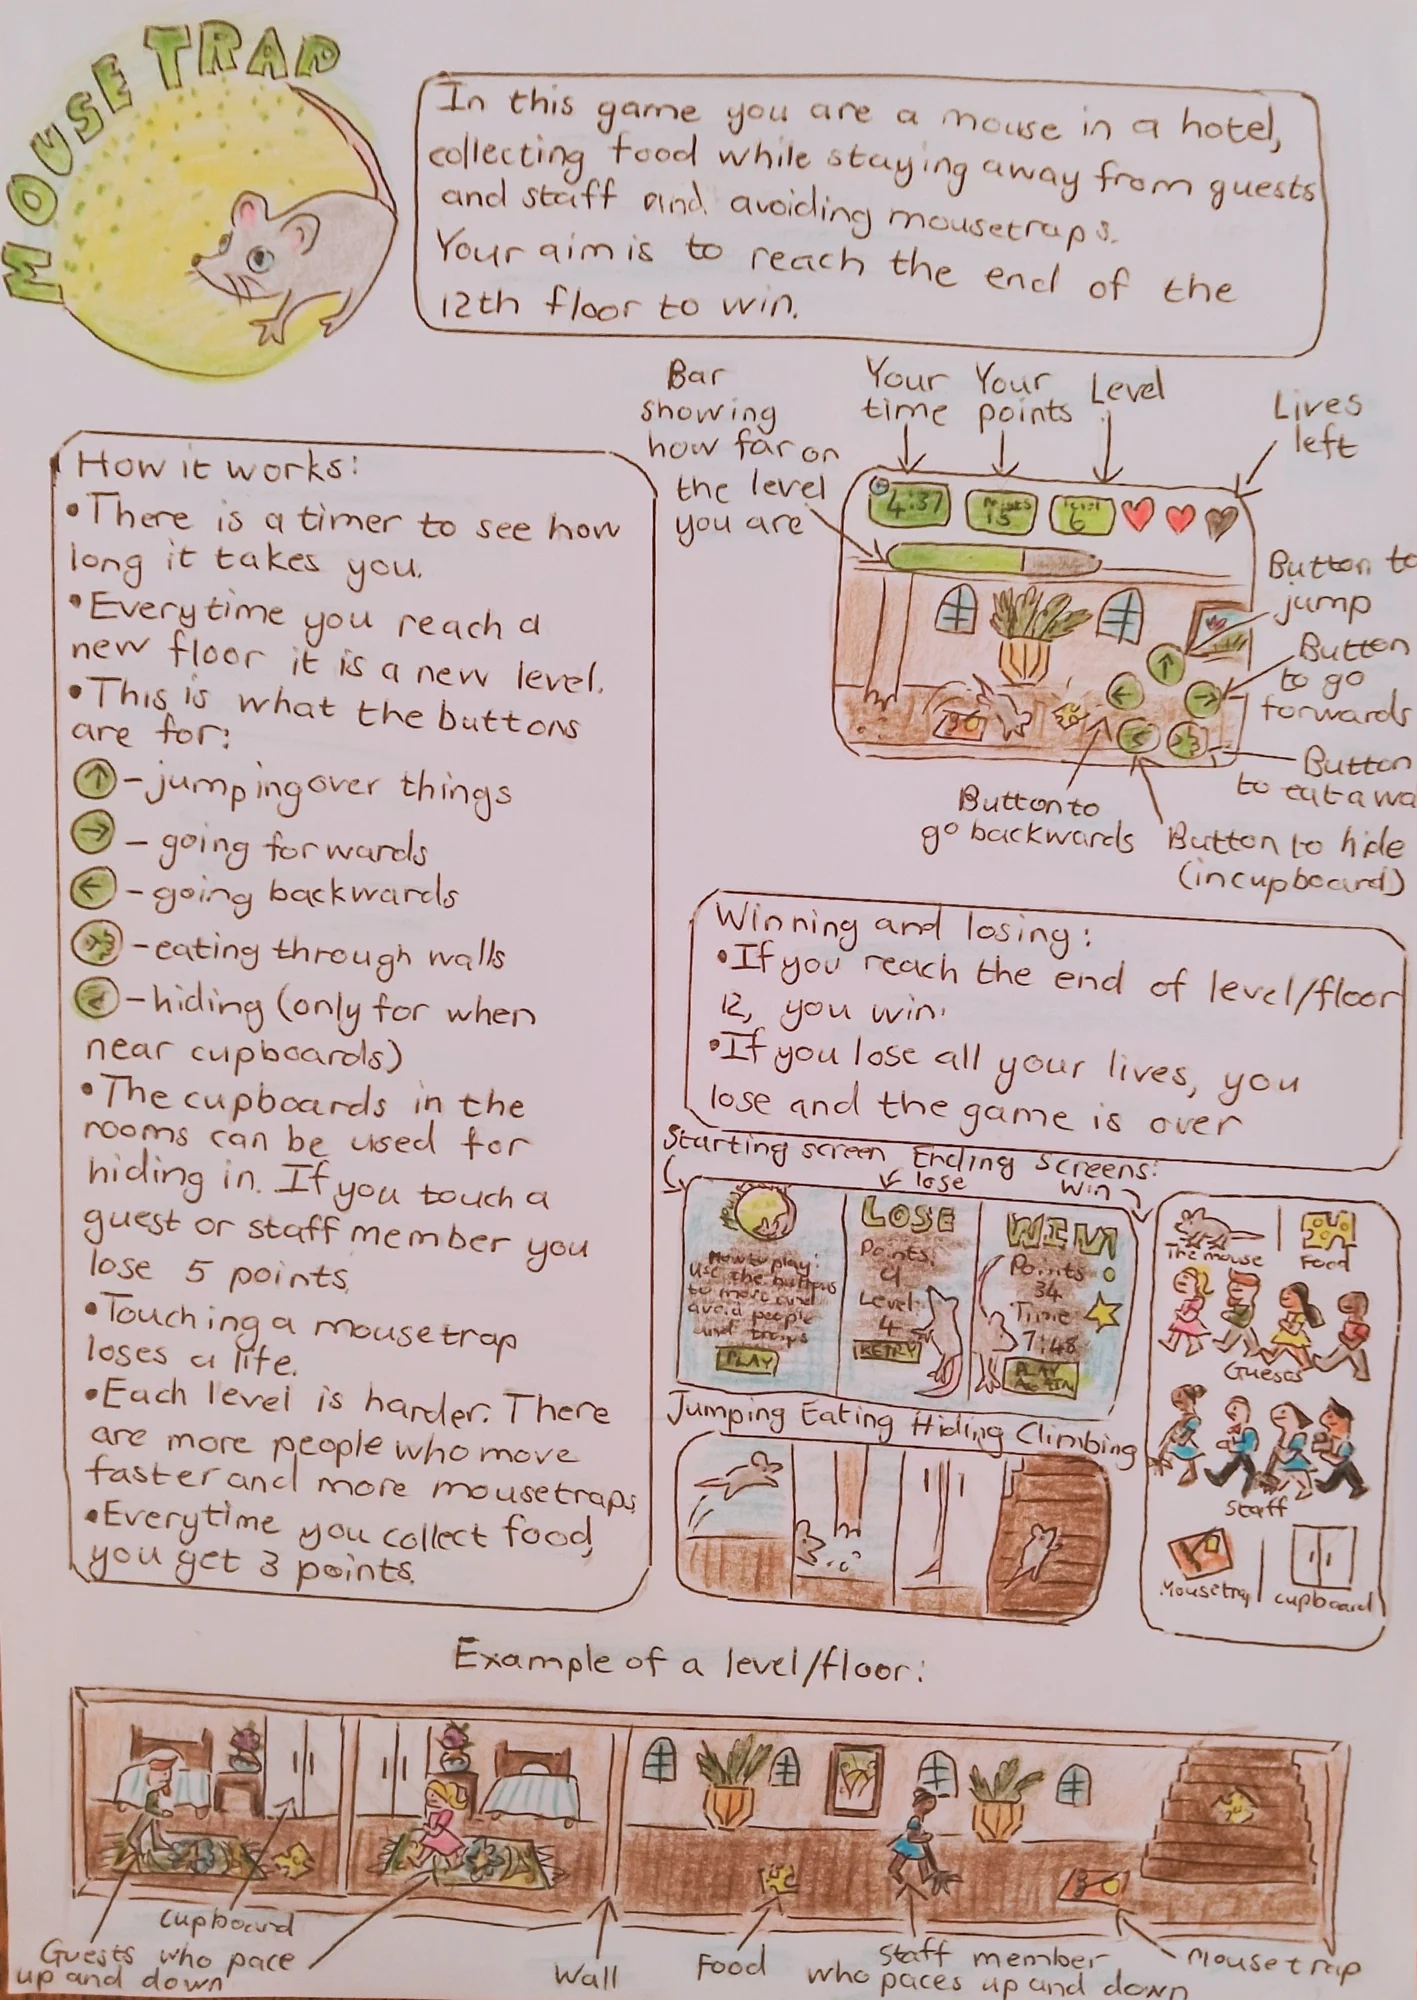 MOUSE TRAP
In this game you are a mouse in a hotel,
collecting food while staying away from guests
and staff and avoiding mousetraps.
Your aim is to reach the end of the
12th floor to win.
Bar
showing
how far on
the level
you are
Your
time
Your
points
Level
Lives
left
4:37
Points
15
Level
6
Button to
jump
Button
to go
forwards
Button
to eat a wa
Button to
go backwards
Button to hide
(in cupboard)
How it works:
•There is a timer to see how
long it takes you.
•Everytime you reach a
new floor it is a new level.
•This is what the buttons
are for:
↑ – jumping over things
→ – going forwards
← – going backwards
– eating through walls
– hiding (only for when
near cupboards)
•The cupboards in the
rooms can be used for
hiding in. If you touch a
guest or staff member you
lose 5 points.
•Touching a mousetrap
loses a life.
•Each level is harder. There
are more people who move
faster and more mousetraps.
•Everytime you collect food,
you get 3 points.
Winning and losing:
•If you reach the end of level/floor
12, you win.
•If you lose all your lives, you
lose and the game is over
Starting screen
Ending screens:
lose
win
How to play:
Use the buttons
to move and
avoid people
and traps
PLAY
LOSE
Points
9
Level
4
RETRY
WIN!
Points
34
Time
7:48
PLAY
AGAIN
The mouse
Food
Guests
Staff
Mousetrap
cupboard
Jumping Eating Hiding Climbing
Example of a level/floor:
Cupboard
Guests who pace
up and down
Wall
Food
Staff member
who paces up and down
Mousetrap